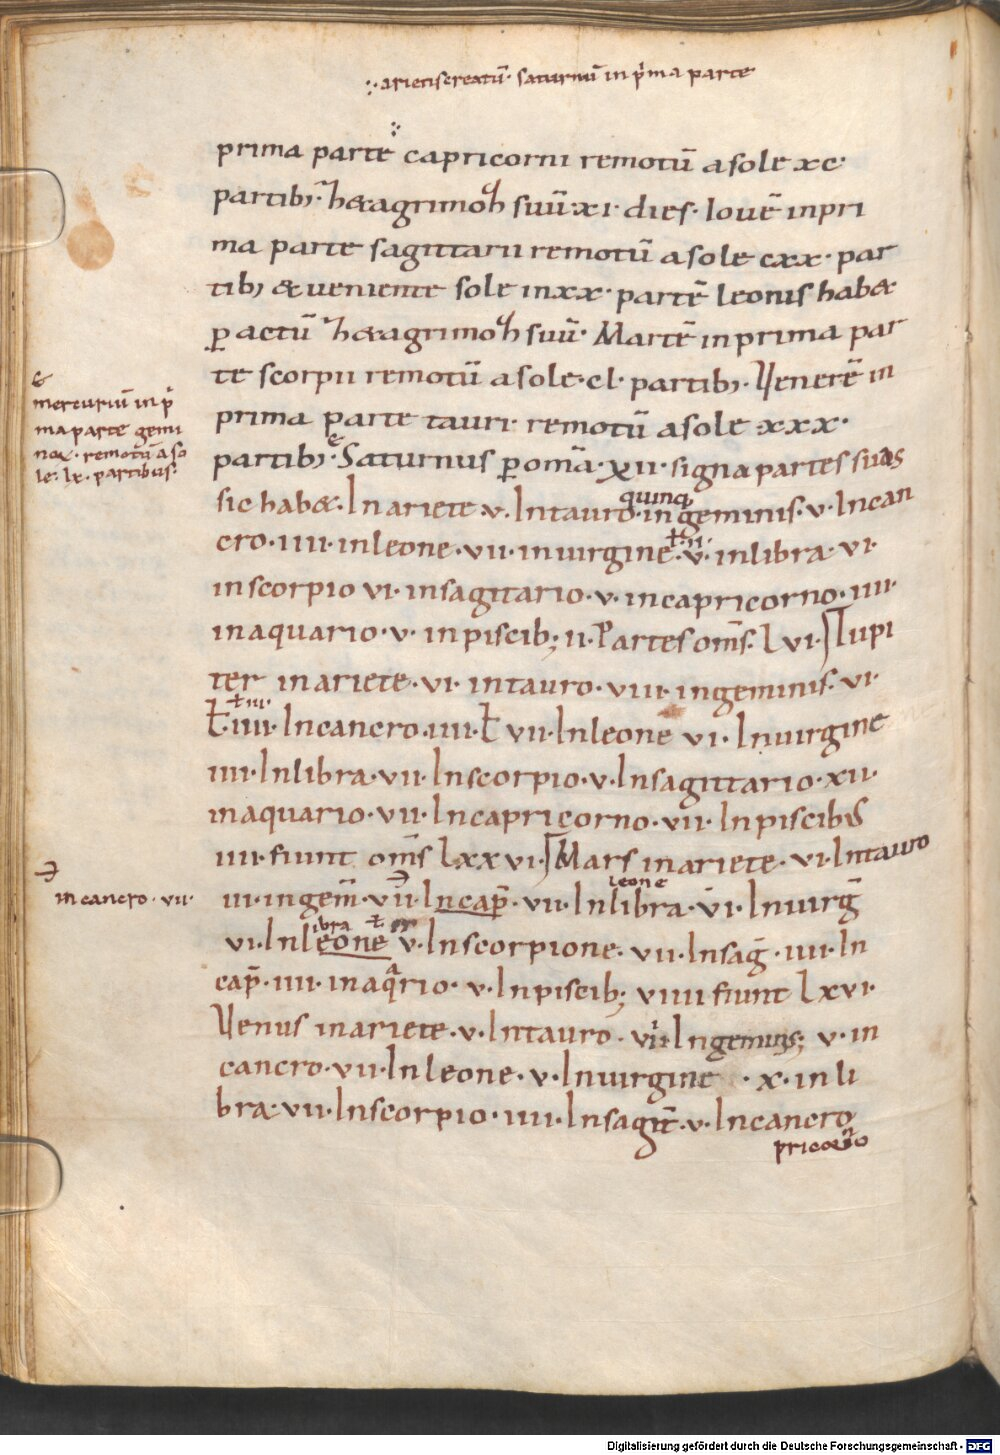 arietis creatū· saturnū in p̄ma parte
prima parte capricorni remotū a sole xc·
partib; hexagrimoh suū·xi· dies· Iouē inpri
ma parte sagittarii remotū a sole cxx· par
tib; & ueniente sole in xx· partē leonis hab&
p̱actū hexagrimoh suū· Martē in prima par
te scorpii remotū a sole·cl· partib;· Uenerē in
prima parte tauri· remotū a sole·xxx·
&
mercuriū in p̄
ma parte gemi
nox· remotū a so
le· lx· partibus·
partib;· Saturnus p̱ omā·xii· signa partes suas
sic hab&· In ariete·v· In tauro· in geminis·v· In can
quinq
cro·iiii· in leone·vii· in uirgine·v· in libra·vi·
ł·iii·
in scorpio vi· in sagitario·v· in capricorno·iiii·
in aquario·v· in piscib; ii· Partes om̄s· lvi· Iupi
ter in ariete·vi· in tauro·viii· in geminis·vi·
ł·iii·
ł·iiii· In cancro·iiii·ł vii· In leone vi· In uirgine
iiii· In libra·vii· In scorpio·v· In sagittario·xii·
in aquario·vii· In capricorno·vii· In piscibus
iiii· fiunt om̄s lxxvi· Mars in ariete·vi· In tauro
in cancro·vii·
iii· in gem̄·vii· In cap̄·vii· In libra·vi· In uirḡ
leone
vi· In leone v· In scorpione·vii· In saḡ·iiii· In
ibra ł
cap̄·iiii· in aqario·v· In piscib; viiii fiunt lxvi·
Uenus in ariete·v· In tauro·vii· In geminis; v· in
cancro·vii· In leone·v· In uirgine ·x· in li
bra·vii· In scorpio·iiii· In sagit̄·v· In cancro
pricorno
Digitalisierung gefördert durch die Deutsche Forschungsgemeinschaft - DFG